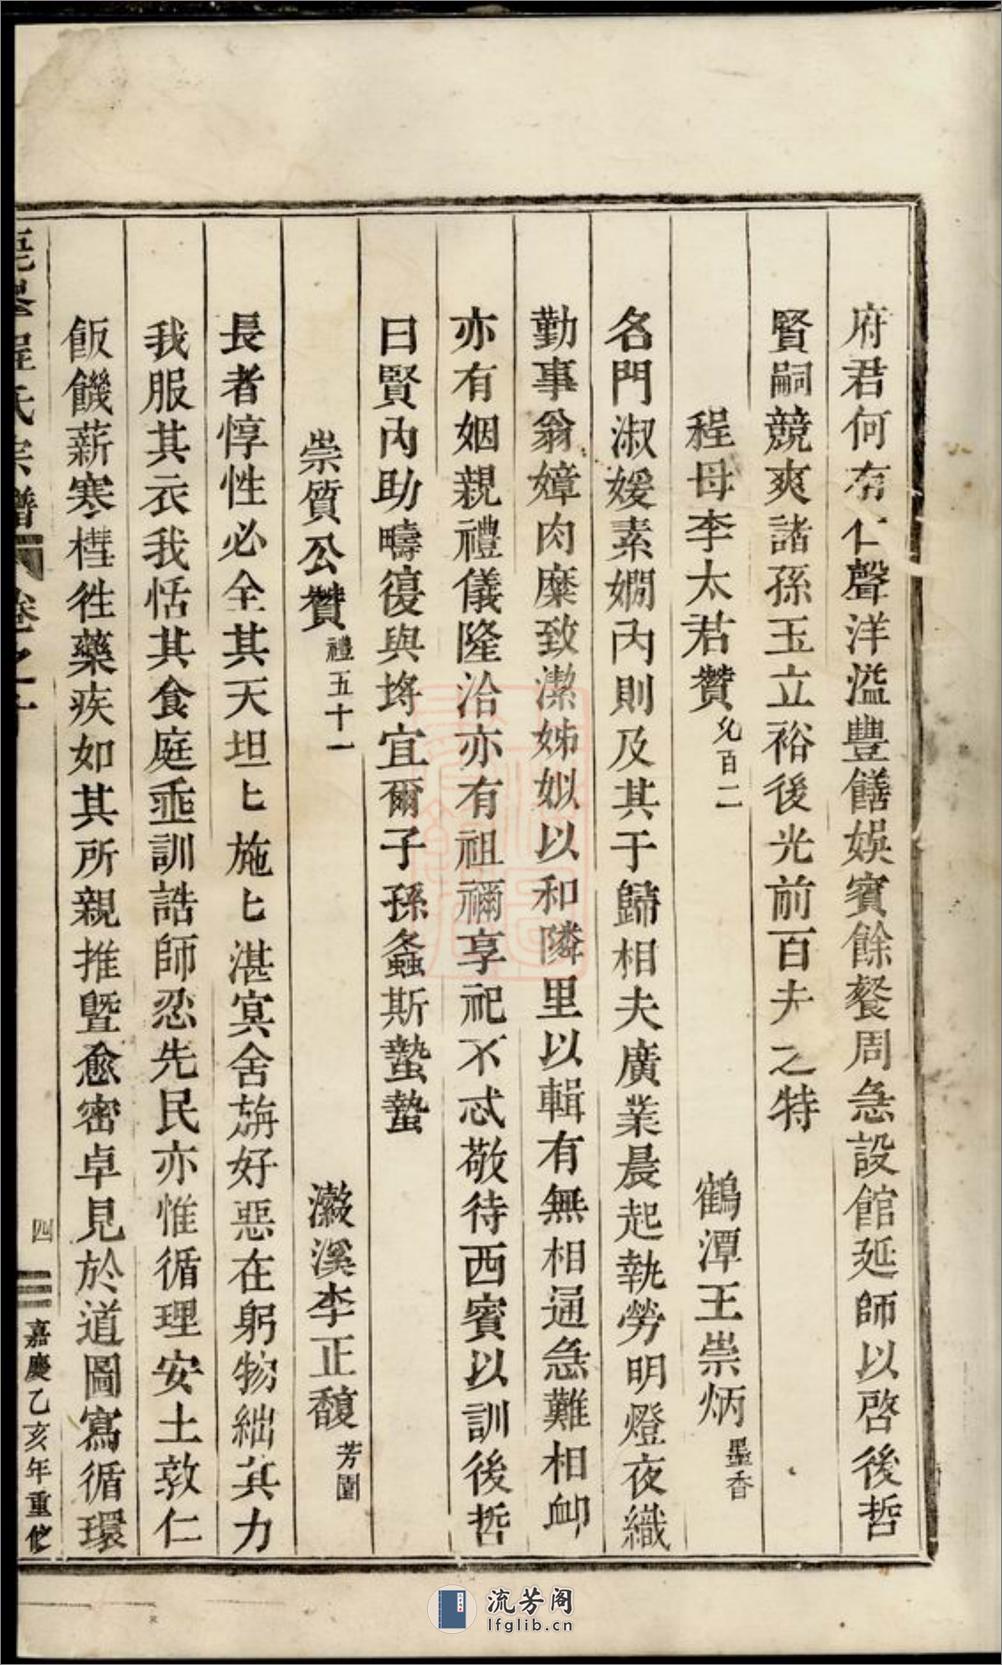 府君何有仁聲洋溢豐饍娛賓餘餐周急設館延師以啓後哲
賢嗣競爽諸孫玉立裕後光前百夫之特
程母李太君贊 允百二 鶴潭王崇炳 墨香
名門淑媛素嫻內則及其于歸相夫廣業晨起執勞明燈夜織
勤事翁嫜肉糜致潔姊姒以和隣里以輯有無相通急難相卹
亦有姻親禮儀隆洽亦有祖禰享祀不忒敬待西賓以訓後哲
曰賢內助疇復與埓宜爾子孫螽斯蟄蟄
崇質公贊 禮五十一 瀫溪李正馥 芳園
長者惇性必全其天坦匕施匕湛㝠舍旃好惡在躬物絀其力
我服其衣我恬其食庭垂訓誥師忍先民亦惟循理安土敦仁
飯饑薪寒槥徃藥疾如其所親推曁愈密卓見於道圖寫循環
程氏宗譜 卷之 四 嘉慶乙亥年重修
流芳阁
lfglib.cn